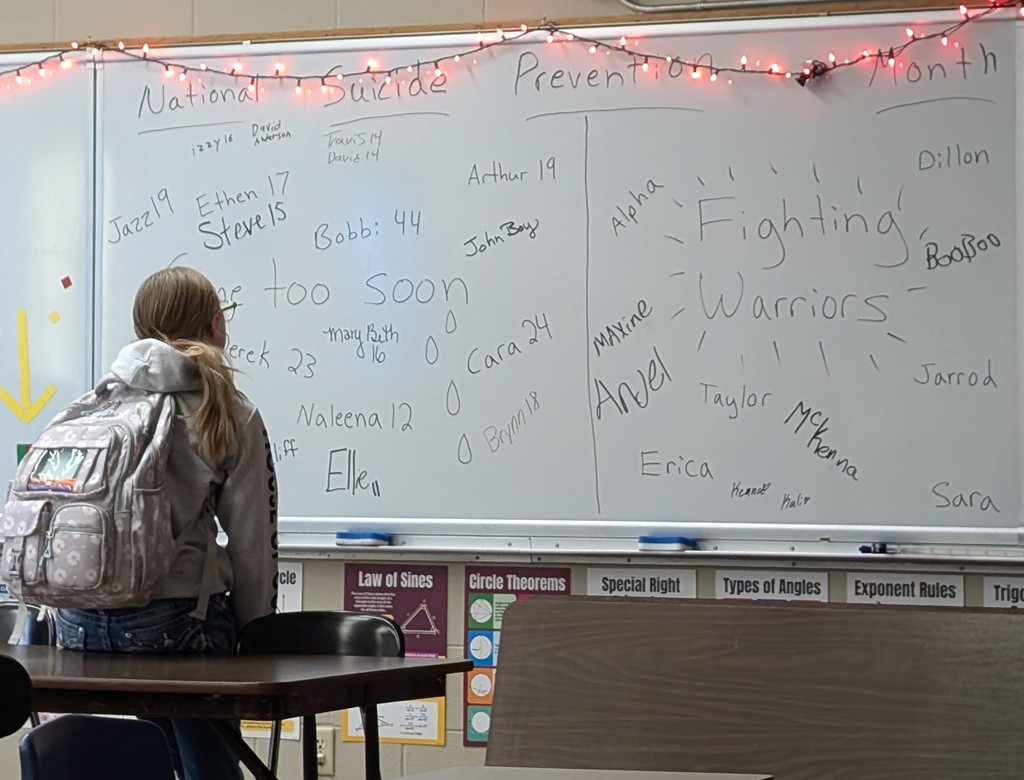 National Suicide Prevention Month
izzy 16
David Anderson
Travis 14
David 14
Arthur 19
Dillon
Jazz 19
Ethen 17
Steve 15
Bobbi 44
John Boy
Alpha
Fighting
Warriors
BooBoo
too soon
Mary Beth
16
Cara 24
Maxine
Derek 23
Angel
Taylor
McKenna
Jarrod
Naleena 12
Brynn 18
Elle 11
Erica
Kali
Sara
Law of Sines
Circle Theorems
Special Right
Types of Angles
Exponent Rules